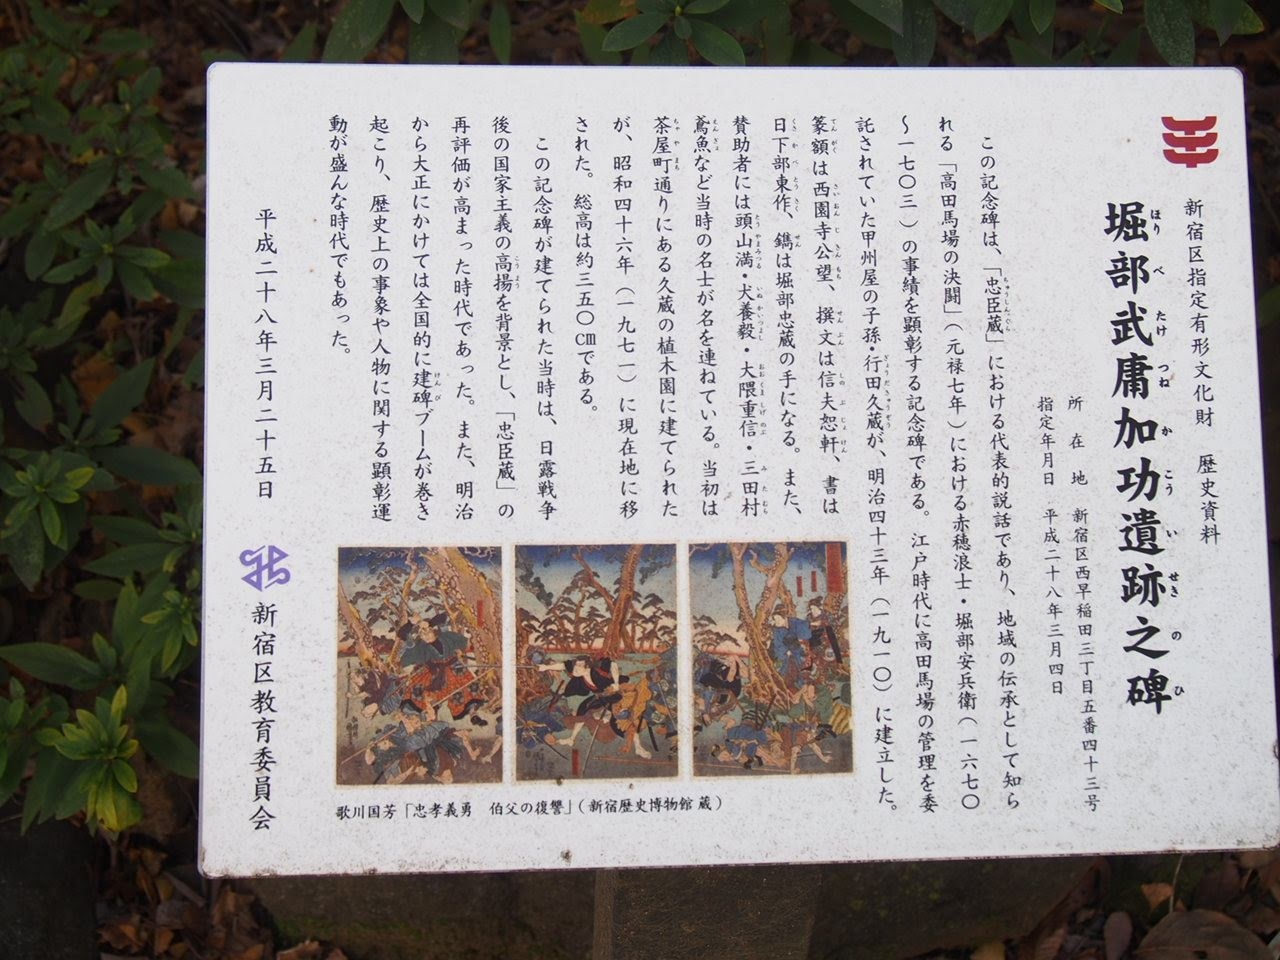 新宿区指定有形文化財　歴史資料
堀部武庸加功遺跡之碑
ほりべたけつねかこういせきのひ
所在地　新宿区西早稲田三丁目五番四十三号
指定年月日　平成二十八年三月四日
この記念碑は、「忠臣蔵」における代表的説話であり、地域の伝承として知ら
れる「高田馬場の決闘」（元禄七年）における赤穂浪士・堀部安兵衛（一六七〇
～一七〇三）の事績を顕彰する記念碑である。江戸時代に高田馬場の管理を委
託されていた甲州屋の子孫・行田久蔵が、明治四十三年（一九一〇）に建立した。
篆額は西園寺公望、撰文は信夫恕軒、書は
日下部東作、鐫は堀部忠蔵の手になる。また、
賛助者には頭山満・犬養毅・大隈重信・三田村
鳶魚など当時の名士が名を連ねている。当初は
茶屋町通りにある久蔵の植木園に建てられた
が、昭和四十六年（一九七一）に現在地に移
された。総高は約三五〇㎝である。
この記念碑が建てられた当時は、日露戦争
後の国家主義の高揚を背景とし、「忠臣蔵」の
再評価が高まった時代であった。また、明治
から大正にかけては全国的に建碑ブームが巻き
起こり、歴史上の事象や人物に関する顕彰運
動が盛んな時代でもあった。
平成二十八年三月二十五日
新宿区教育委員会
歌川国芳「忠孝義勇　伯父の復讐」（新宿歴史博物館 蔵）